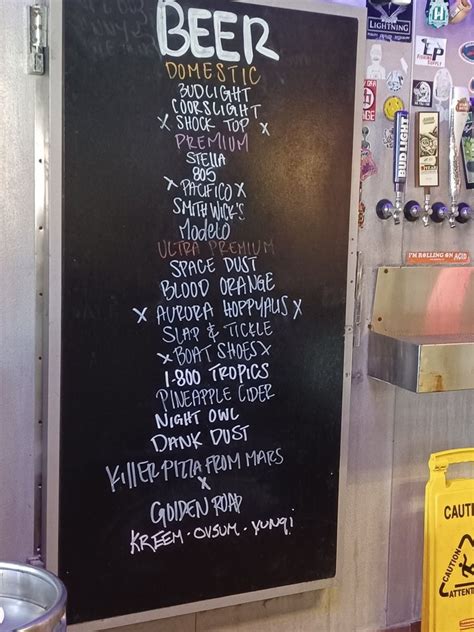 BEER
DOMESTIC
BUDLIGHT
COORSLIGHT
x SHOCK TOP x
PREMIUM
STELLA
805
x PACIFICO x
SMITHWICK'S
MODELO
ULTRA PREMIUM
SPACE DUST
BLOOD ORANGE
x AURORA HOPPYALIS x
SLAP & TICKLE
x BOAT SHOES x
1-800 TROPICS
PINEAPPLE CIDER
NIGHT OWL
DANK DUST
KILLER PIZZA FROM MARS
x
GOLDEN ROAD
KREEM · OVSUM · YUNGI
LIGHTNING
LP
BUD LIGHT
I'M ROLLING ON ACID
CAUTION
CAUTION